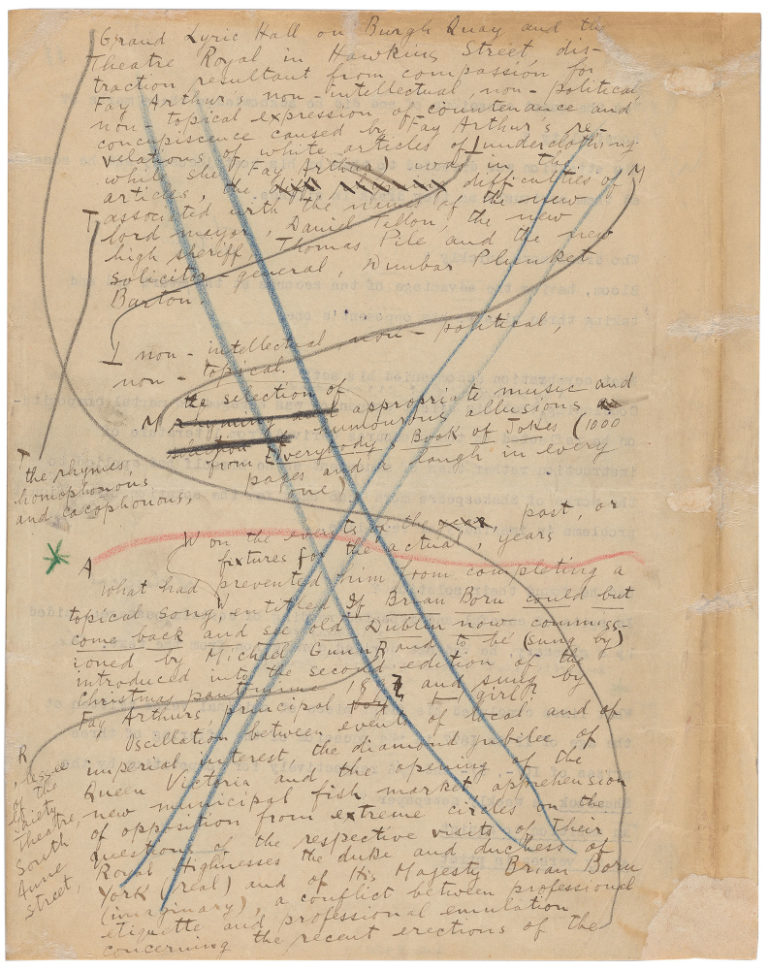 Grand Lyric Hall on Burgh Quay and the
Theatre Royal in Hawkins Street, dis-
traction resultant from compassion for
Fay Arthur's non-intellectual, non-political
non-topical expression of countenance and
concupiscence caused by Fay Arthur's re-
velations of white articles of underclothing
while she (Fay Arthur) was in the
articles, the difficulties of M
T associated with the names of the new
lord mayor, Daniel Tallon, the new
high sheriff, Thomas Pile and the new
solicitor general, Dunbar Plunket
Barton.
I non-intellectual non-political
non-topical.
the selection of
M rhyming and appropriate music and
selection of humourous allusions
from Everybody's Book of Jokes (1000
pages and a laugh in every
one)
T
the rhymes,
homophonous
and cacophonous,
W on the events of the past, or
fixtures for the actual, years
A
What had prevented him from completing a
topical song, W entitled If Brian Boru could but
come back and see old Dublin now commiss-
ioned by Michael Gunn R and to be (sung by)
introduced into the second edition of the
Christmas pantomime and sung by
Fay Arthurs, principal girl?
Oscillation between events of local and of
imperial interest, the diamond jubilee of
Queen Victoria and the opening of the
new municipal fish market, apprehension
of opposition from extreme circles on the
questions of the respective visits of Their
Royal Highnesses the duke and duchess of
York (real) and of His Majesty Brian Boru
(imaginary), a conflict between professional
etiquette and professional emulation
concerning the recent erections of the
R
, lessee
of the
Gaiety
Theatre,
South
Anne
street,